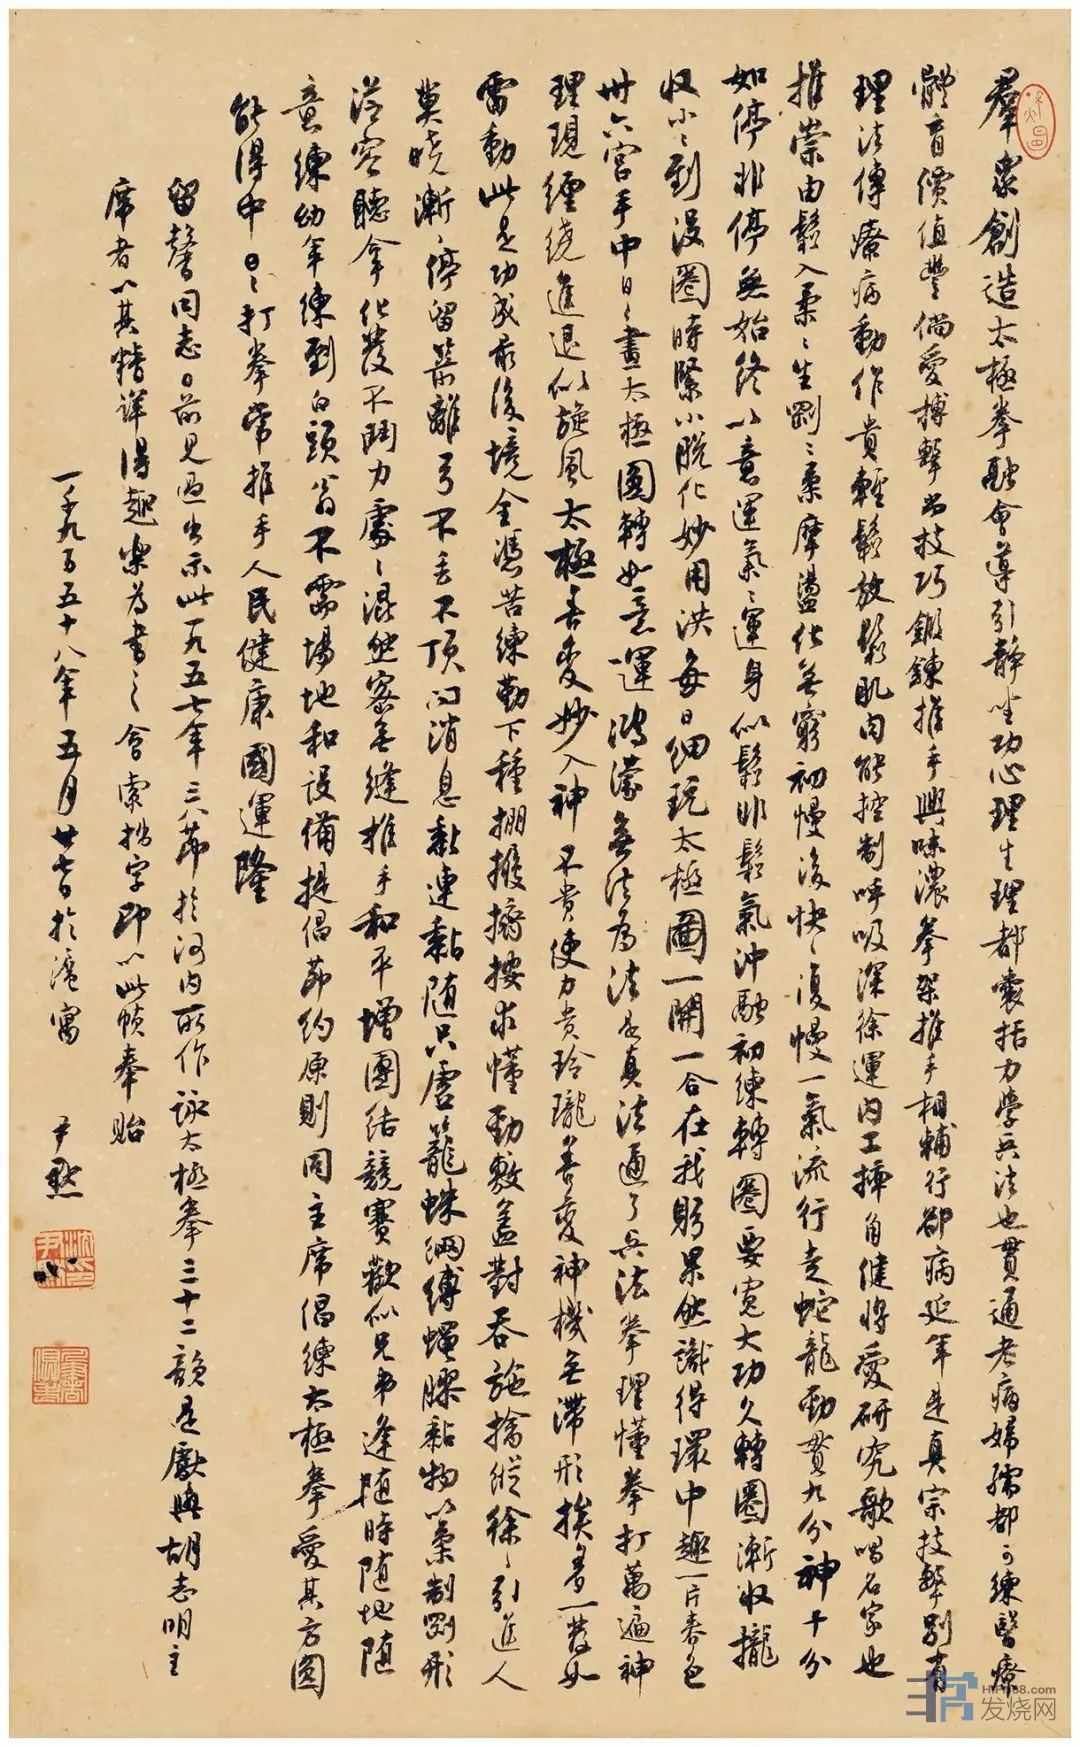 羣衆創造太極拳融會導引靜坐功心理生理都囊括力學兵法也貫通老病婦孺都可練醫療
體育價值豐倘愛搏擊尚技巧鍛鍊推手興味濃拳架推手相輔行卻病延年是真宗技擊別有
理法傳療病動作貴輕鬆放鬆肌肉能控制呼吸深徐運內工摔角健將愛研究歌唱名家也
推崇由鬆入柔々生剛々柔摩盪化無窮初慢後快々復慢一氣流行走蛇龍勁貫九分神十分
如停非停無始終以意運氣々運身似鬆非鬆氣沖融初練轉圈要寬大功久轉圈漸收攏
收小々到沒圈時緊小脫化妙用洪每日細玩太極圖一開一合在我躬果然識得環中趣一片春色
卅六宮手中日々畫太極圓轉如意運鴻濛無法為法是真法通了兵法拳理懂拳打萬遍神
理現纏繞進退似旋風太極善變妙入神不貴使力貴玲瓏善變神機無滯形挨着一發如
雷動此是功成最後境全憑苦練勤下種掤攦擠按求懂勁敷蓋對吞施擒縱徐々引進人
莫曉漸々停留箭離弓不丟不頂向消息黏連黏隨只虛籠蛛網縛蠅膠黏物以柔制剛形
從容聽拿化發不鬥力處々混然密無縫推手和平增團結競賽歡似兄弟逢隨時隨地隨
意練幼年練到白頭翁不需場地和設備提倡節約原則同主席倡練太極拳愛其方圓
能得中日々打拳常推手人民健康國運隆
留馨同志日前見過出示此一九五七年三八節於河內所作詠太極拳三十二韻是獻與胡志明主
席者以其精詳得趣樂為書之會索拙字即以此幀奉貽
一千九百五十八年五月廿七日於滬寓 尹默
HIFI168.com
发烧网